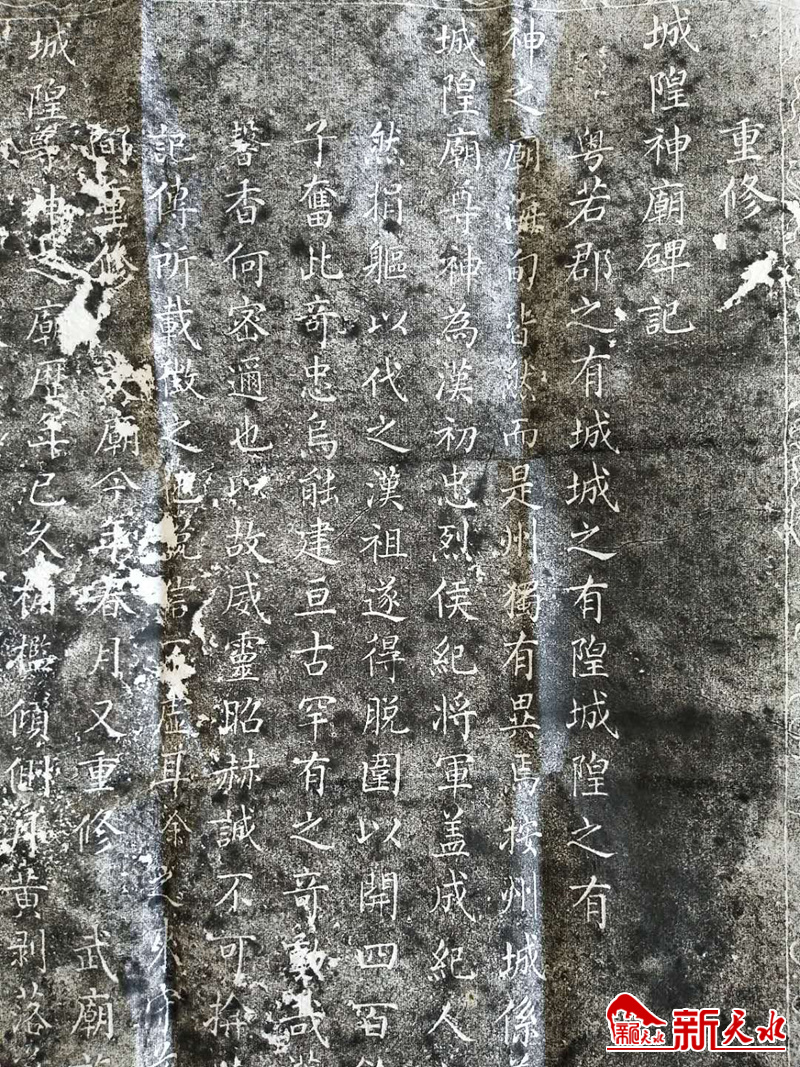 重修
城隍神廟碑記
粤若郡之有城城之有隍城隍之有
神之廟海甸皆然而是州獨有異焉按州城係
城隍廟尊神為漢初忠烈侯紀將軍盖成紀人
然捐軀以代之漢祖遂得脱圍以開四百
子奮此奇忠烏能建亘古罕有之奇勳哉
馨香何密邇也以故威靈昭赫誠不可揜
記傳所載徵之虛耳余
重修 廟今年春月又重修 武廟
城隍尊神之廟歷年已久楠檻傾側丹黄剥落
新天水